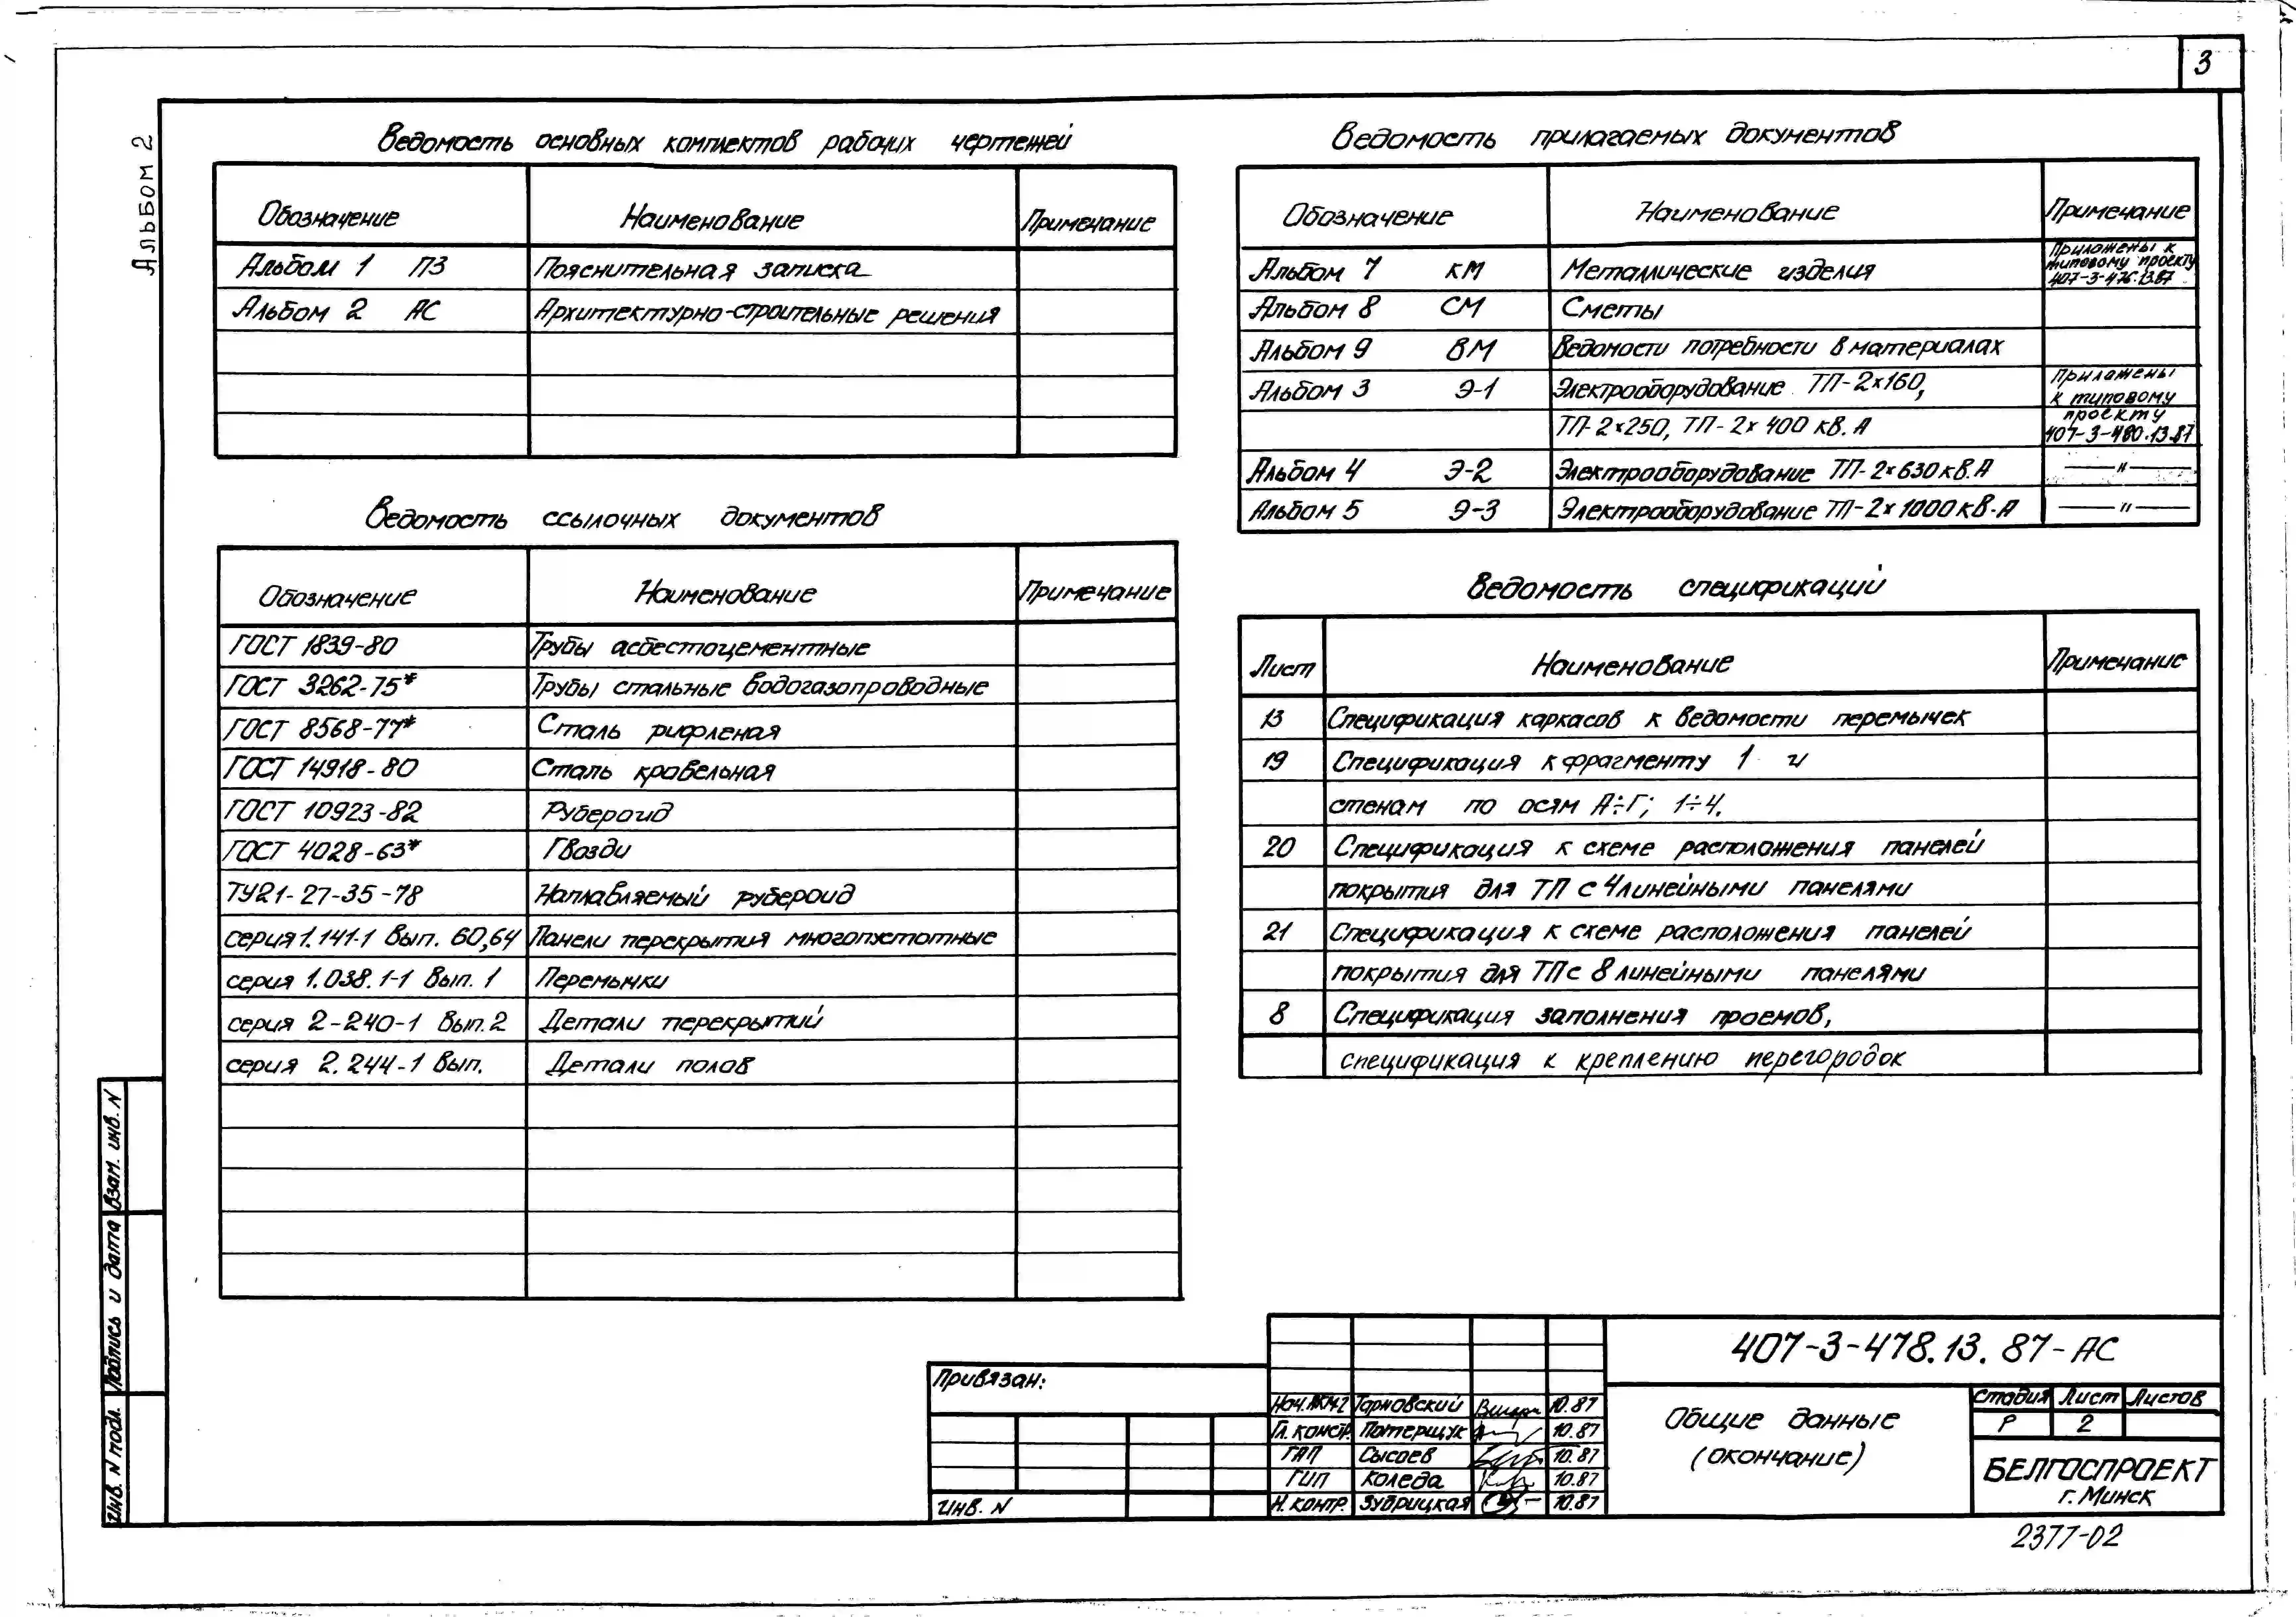 3
Альбом 2
Ведомость основных комплектов рабочих чертежей
Обозначение Наименование Примечание
Альбом 1 ПЗ Пояснительная записка
Альбом 2 АС Архитектурно-строительные решения
Ведомость ссылочных документов
Обозначение Наименование Примечание
ГОСТ 1839-80 Трубы асбестоцементные
ГОСТ 3262-75* Трубы стальные водогазопроводные
ГОСТ 8568-77* Сталь рифленая
ГОСТ 14918-80 Сталь кровельная
ГОСТ 10923-82 Рубероид
ГОСТ 4028-63* Гвозди
ТУ21-27-35-78 Наплавляемый рубероид
серия 1.141-1 вып. 60,64 Панели перекрытия многопустотные
серия 1.038.1-1 вып. 1 Перемычки
серия 2-240-1 вып. 2 Детали перекрытий
серия 2.244-1 вып. Детали полов
Ведомость прилагаемых документов
Обозначение Наименование Примечание
Альбом 7 КМ Металлические изделия Приложены к
типовому проекту
407-3-476.13.87
Альбом 8 СМ Сметы
Альбом 9 ВМ Ведомости потребности в материалах
Альбом 3 Э-1 Электрооборудование ТП-2х160, Приложены
к типовому
ТП-2х250, ТП-2х400 кВ.А проекту
407-3-480.13.87
Альбом 4 Э-2 Электрооборудование ТП-2х630 кВ.А —"—
Альбом 5 Э-3 Электрооборудование ТП-2х1000 кВ-А —"—
Ведомость спецификаций
Лист Наименование Примечание
13 Спецификация каркасов к ведомости перемычек
19 Спецификация к фрагменту 1 и
стенам по осям А÷Г; 1÷4.
20 Спецификация к схеме расположения панелей
покрытия для ТП с 4линейными панелями
21 Спецификация к схеме расположения панелей
покрытия для ТП с 8 линейными панелями
8 Спецификация заполнения проемов,
спецификация к креплению перегородок
Взам. инв. N
Подпись и дата
Инв. N подл.
Привязан:
Инв. N
Тарновский 10.87
Гл. констр. Потерщук 10.87
ГАП Сысоев 10.87
ГИП Коледа 10.87
Н. контр. Зубрицкая 10.87
407-3-478.13.87-АС
Общие данные
(окончание)
Стадия Лист Листов
Р 2
БЕЛГОСПРОЕКТ
г. Минск
2377-02